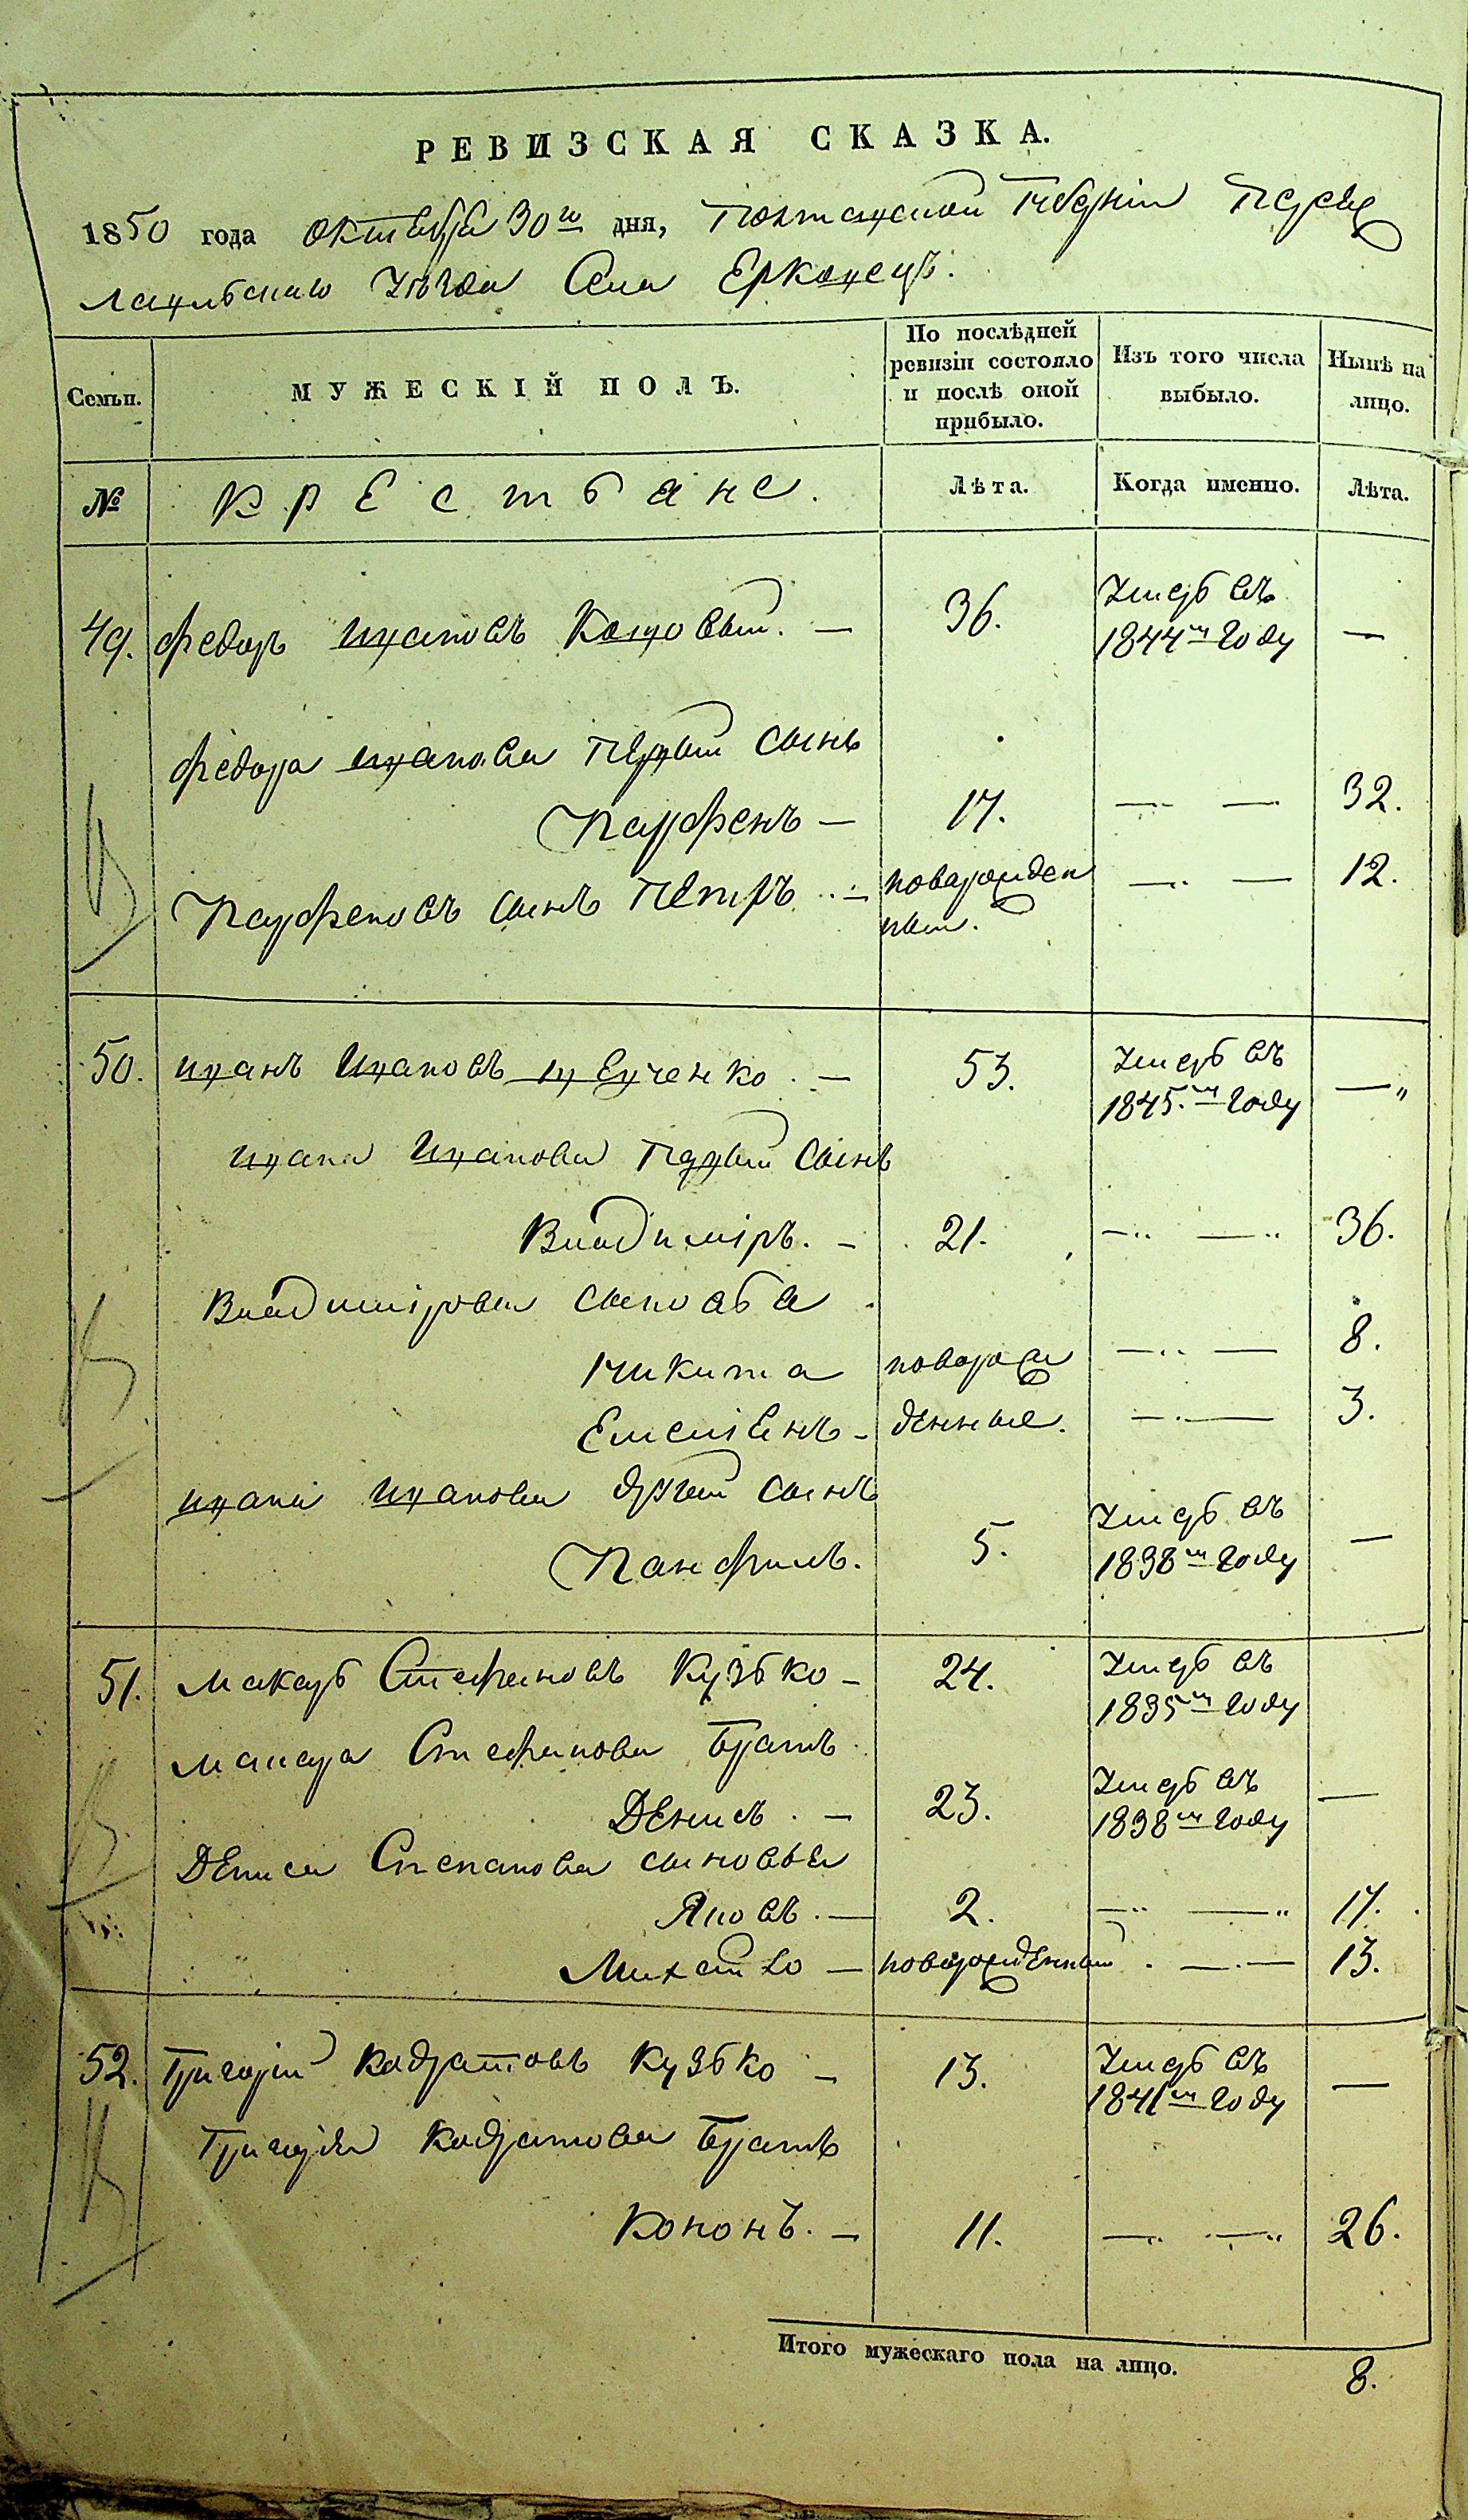 РЕВИЗСКАЯ СКАЗКА.
1850 года октября 30го дня, Полтавской Губерніи Переяс
лавльскаго Уѣзда Села Ерковецъ.
Семьи.
МУЖЕСКІЙ ПОЛЪ.
По послѣдней ревизіи состояло и послѣ оной прибыло.
Изъ того числа выбыло.
Нынѣ на лицо.
№ Крестьяне. Лѣта. Когда именно. Лѣта.
49. Федоръ Ивановъ Коцовый. — 36. Умеръ въ 1844м году —
Федора Иванова первый сынъ
Парфенъ — 17. — — 32.
Парфеновъ сынъ Петръ — новорожден
ный. — — 12.
50. Иванъ Ивановъ Шевченко — 53. Умеръ въ 1845м году —
Ивана Иванова первый сынъ
Владиміръ. — 21. — — 36.
Владимірова сыновья
Никита новорож — — 8.
Емеліенъ — денные. — — 3.
Ивана Иванова другий сынъ
Панфилъ. 5. Умеръ въ 1838м году —
51. Макаръ Стефановъ Кузько — 24. Умеръ въ 1835м году
Макара Стефанова братъ
Денисъ — 23. Умеръ въ 1838м году —
Дениса Степанова сыновья
Яковъ. — 2. — — 17.
Михайло — новорожденный — — 13.
52. Григорій Кодратовъ Кузько — 13. Умеръ въ 1841м году —
Григорія Кодратова братъ
Кононъ. — 11. — — 26.
Итого мужескаго пола на лицо. 8.